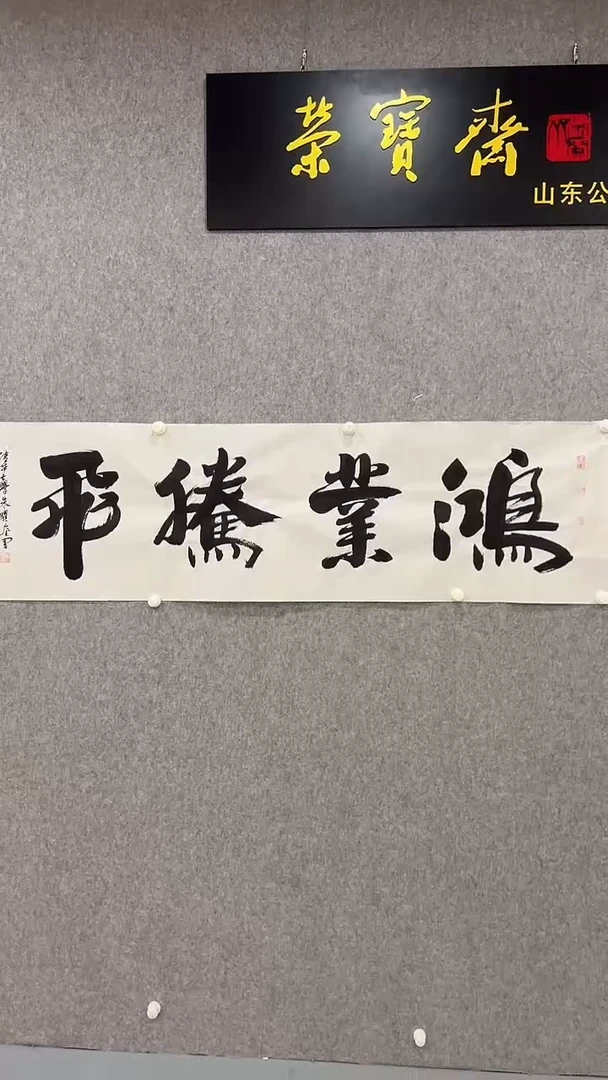 榮寶齋
山东公
鴻業騰飛